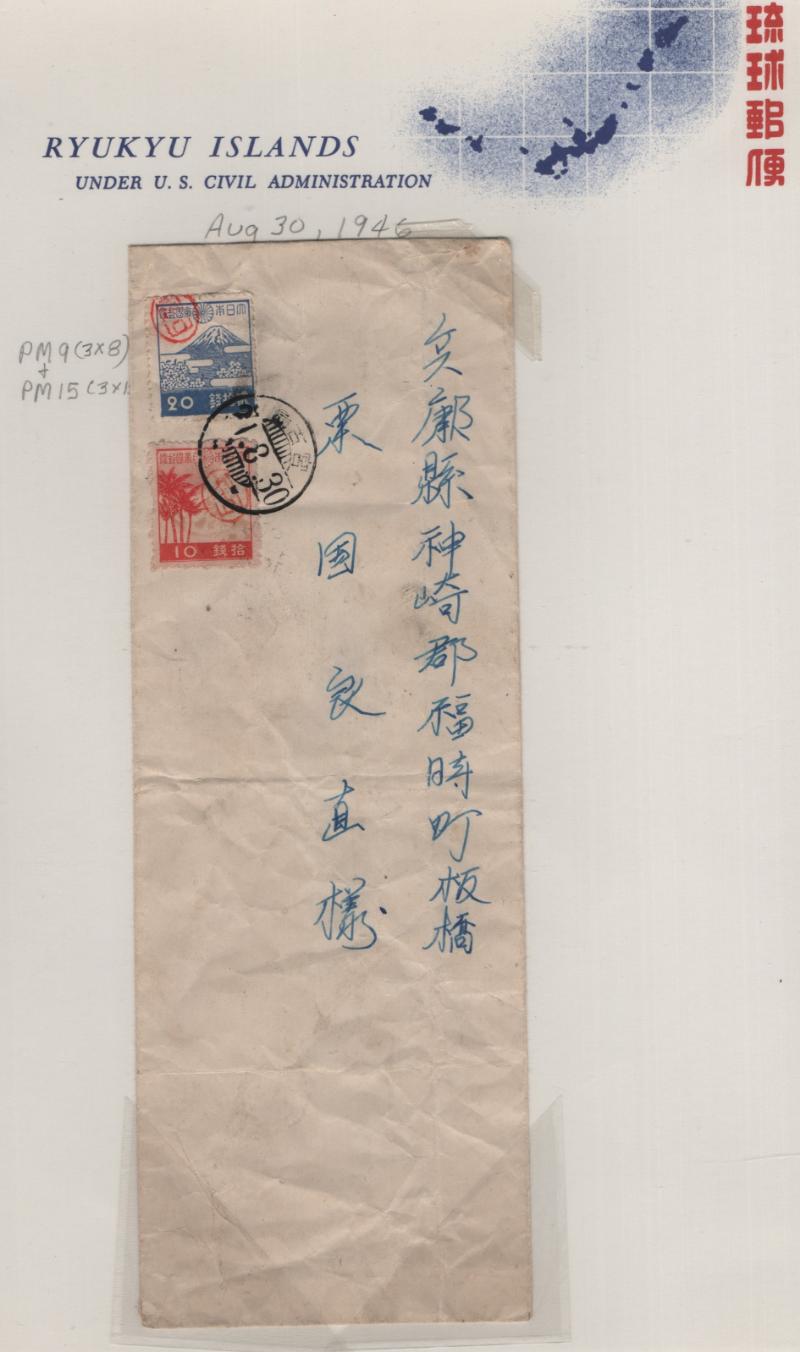 琉球郵便
RYUKYU ISLANDS
UNDER U. S. CIVIL ADMINISTRATION
Aug 30, 1946
PM9(3×8)
+
PM15(3×1
大日本帝國郵便
20 銭拾貳
21.8.30
10 銭拾
兵庫縣神崎郡福時町板橋
粟国良直様